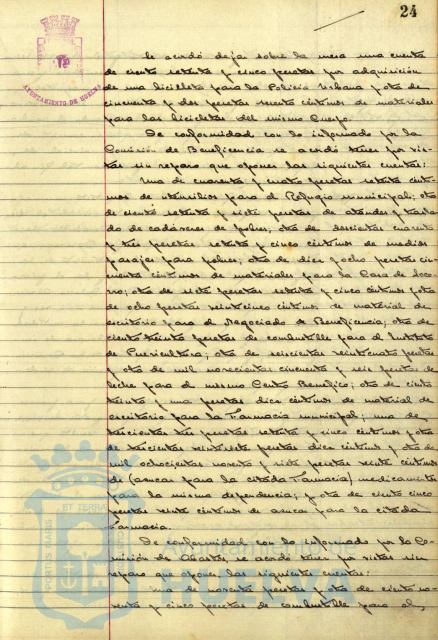 24
AYUNTAMIENTO DE HUELVA
Se acordó dejar sobre la mesa una cuenta
de ciento setenta y cinco pesetas por adquisición
de una bicicleta para la Policía Urbana y otra de
cincuenta y dos pesetas sesenta céntimos de materiales
para las bicicletas del mismo Cuerpo.
De conformidad con lo informado por la
Comisión de Beneficencia se acordó tener por vis-
tas sin reparo que oponer las siguientes cuentas:
Una de cuarenta y cuatro pesetas setenta cénti-
mos de utensilios para el Refugio municipal; otra
de ciento setenta y siete pesetas de ataudes y trasla-
do de cadáveres de pobres; otra de doscientas cuarenta
y tres pesetas setenta y cinco céntimos de medios
pasajes para pobres; otra de diez y ocho pesetas cin-
cuenta céntimos de materiales para la Casa de Soco-
rro; otra de siete pesetas setenta y cinco céntimos y otra
de ocho pesetas veinticinco céntimos de material de
escritorio para el Negociado de Beneficencia; otra de
ciento treinta pesetas de combustible para el Instituto
de Puericultura; otra de seiscientas veinticuatro pesetas
y otra de mil novecientas cincuenta y seis pesetas de
leche para el mismo Centro Benéfico; otra de ciento
treinta y una pesetas diez céntimos de material de
escritorio para la Farmacia municipal; una de
trescientas tres pesetas setenta y cinco céntimos y otra
de trescientas veintisiete pesetas diez céntimos y otra de
mil ochocientas noventa y siete pesetas veinte céntimos
de (azucar para la citada Farmacia) medicamentos
para la misma dependencia; y otra de ciento cinco
pesetas veinte céntimos de azucar para la citada
Farmacia.
De conformidad con lo informado por la Co-
misión de se acordó tener por vistas sin
reparo que oponer las siguientes cuentas:
una de noventa pesetas y otra de ciento no-
venta y cinco pesetas de combustible para el
PORTUS MARIS ET TERRAE
Ayuntamiento de
HUELVA